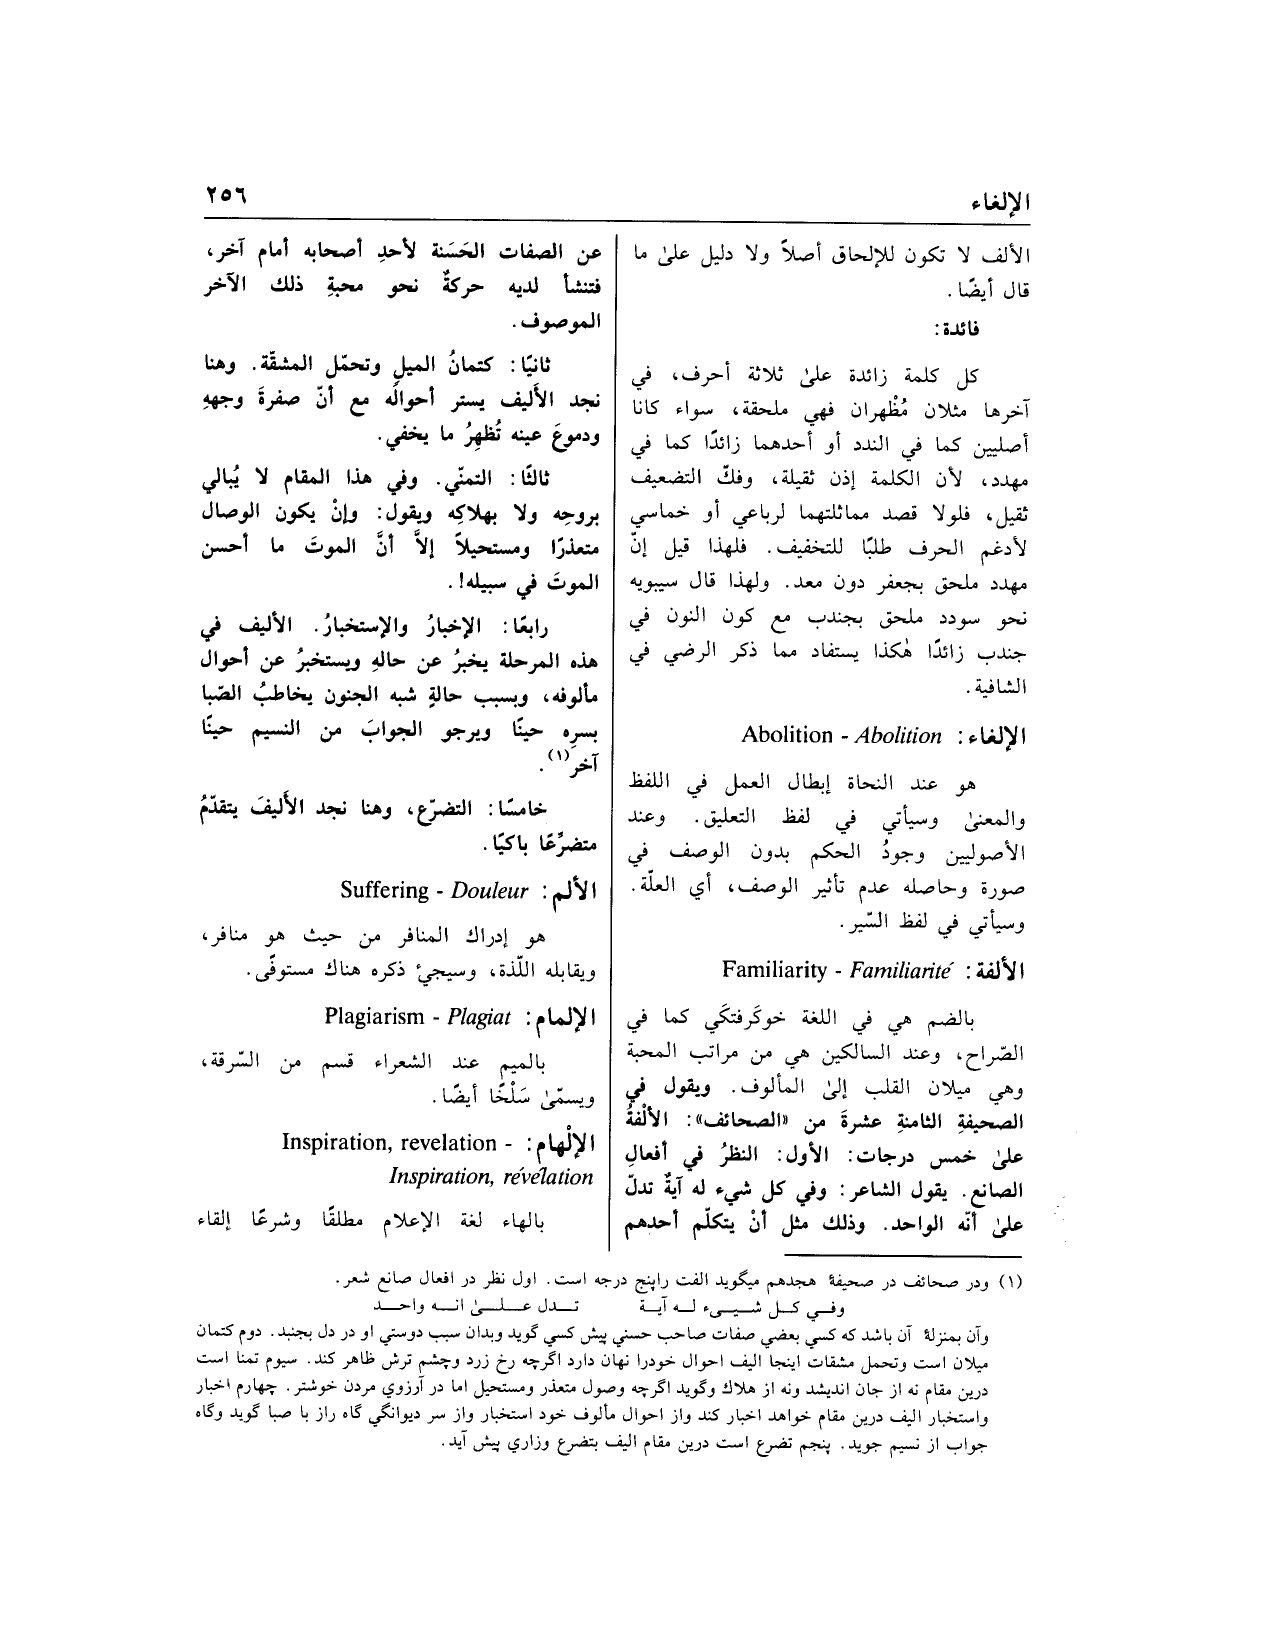 الإلغاء
٢٥٦
الألف لا تكون للإلحاق أصلاً ولا دليل علىٰ ما
قال أيضًا.
فائدة:
كل كلمة زائدة علىٰ ثلاثة أحرف، في
آخرها مثلان مُظْهران فهي ملحقة، سواء كانا
أصليين كما في الندد أو أحدهما زائدًا كما في
مهدد، لأن الكلمة إذن ثقيلة، وفكّ التضعيف
ثقيل، فلولا قصد مماثلتهما لرباعي أو خماسي
لأدغم الحرف طلبًا للتخفيف. فلهذا قيل إنّ
مهدد ملحق بجعفر دون معد. ولهذا قال سيبويه
نحو سودد ملحق بجندب مع كون النون في
جندب زائدًا هٰكذا يستفاد مما ذكر الرضي في
الشافية.
الإلغاء: Abolition - Abolition
هو عند النحاة إبطال العمل في اللفظ
والمعنىٰ وسيأتي في لفظ التعليق. وعند
الأصوليين وجودُ الحكم بدون الوصف في
صورة وحاصله عدم تأثير الوصف، أي العلّة.
وسيأتي في لفظ السّير.
الألفة: Familiarity - Familiarité
بالضم هي في اللغة خوكَرفتكَي كما في
الصّراح، وعند السالكين هي من مراتب المحبة
وهي ميلان القلب إلىٰ المألوف. ويقول في
الصحيفةِ الثامنةِ عشرةَ من «الصحائف»: الألْفةُ
علىٰ خمس درجات: الأول: النظرُ في أفعالِ
الصانع. يقول الشاعر: وفي كل شيء له آيةٌ تدلّ
علىٰ أنّه الواحد. وذلك مثل أنْ يتكلّم أحدهم
عن الصفات الحَسَنة لأحدِ أصحابه أمام آخر،
فتنشأ لديه حركةٌ نحو محبةِ ذلك الآخر
الموصوف.
ثانيًا: كتمانُ الميلِ وتحمّل المشقّة. وهنا
نجد الأَليف يستر أحوالَه مع أنّ صفرةَ وجههِ
ودموعَ عينه تُظهِرُ ما يخفي.
ثالثًا: التمنّي. وفي هذا المقام لا يُبالي
بروحِه ولا بهلاكِه ويقول: وإنْ يكون الوصال
متعذرًا ومستحيلاً إلاَّ أنَّ الموتَ ما أحسن
الموتَ في سبيله!.
رابعًا: الإخبارُ والإستخبارُ. الأليف في
هذه المرحلة يخبرُ عن حالهِ ويستخبرُ عن أحوال
مألوفه، وبسبب حالةٍ شبه الجنون يخاطبُ الصّبا
بسرِه حينًا ويرجو الجوابَ من النسيم حينًا
آخر(١).
خامسًا: التضرّع، وهنا نجد الأَليفَ يتقدّمُ
متضرِّعًا باكيًا.
الألم: Suffering - Douleur
هو إدراك المنافر من حيث هو منافر،
ويقابله اللّذة، وسيجيءُ ذكره هناك مستوفًى.
الإلمام: Plagiarism - Plagiat
بالميم عند الشعراء قسم من السّرقة،
ويسمّىٰ سَلْخًا أيضًا.
الإلْهام: Inspiration, revelation -
Inspiration, révélation
بالهاء لغة الإعلام مطلقًا وشرعًا إلقاء
(١) ودر صحائف در صحيفهٔ هجدهم ميگويد الفت راپنج درجه است. اول نظر در افعال صانع شعر.
وفــي كــل شــيــىء لــه آيــة تــدل عــلــىٰ انــه واحــد
وآن بمنزلهٔ آن باشد كه كسي بعضي صفات صاحب حسني پيش كسي گويد وبدان سبب دوستي او در دل بجنبد. دوم كتمان
ميلان است وتحمل مشقات اينجا اليف احوال خودرا نهان دارد اگرچه رخ زرد وچشم ترش ظاهر كند. سيوم تمنا است
درين مقام نه از جان انديشد ونه از هلاك وگويد اگرچه وصول متعذر ومستحيل اما در آرزوي مردن خوشتر. چهارم اخبار
واستخبار اليف درين مقام خواهد اخبار كند واز احوال مألوف خود استخبار واز سر ديوانگي گاه راز با صبا گويد وگاه
جواب از نسيم جويد. پنجم تضرع است درين مقام اليف بتضرع وزاري پيش آيد.